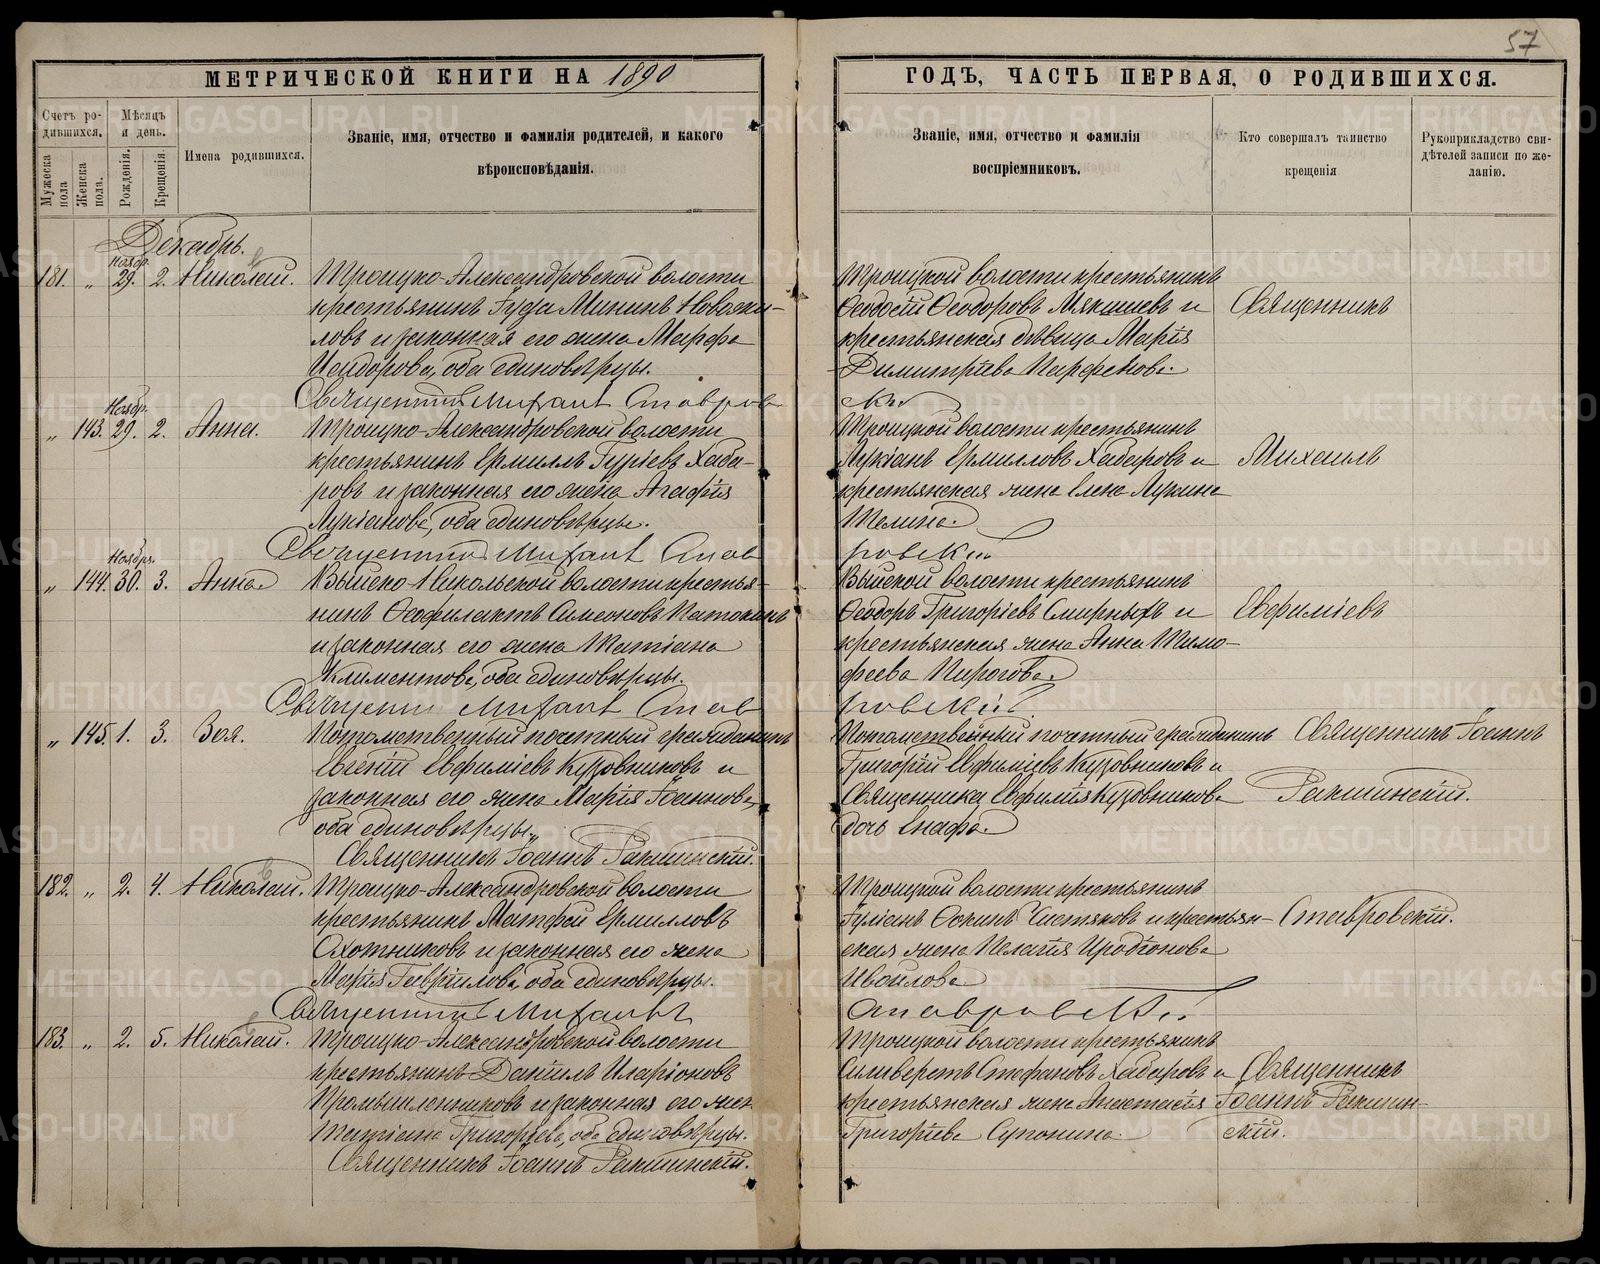 57
МЕТРИЧЕСКОЙ КНИГИ НА 1890
ГОДЪ, ЧАСТЬ ПЕРВАЯ, О РОДИВШИХСЯ.
Счетъ ро-
дившихся.
Мѣсяцъ
и день.
Мужеска
пола
Женска
пола.
Рожденія.
Крещенія.
Имена родившихся.
Званіе, имя, отчество и фамилія родителей, и какого
вѣроисповѣданія.
Званіе, имя, отчество и фамилія
воспріемниковъ.
Кто совершалъ таинство
крещенія
Рукоприкладство сви-
дѣтелей записи по же-
ланію.
Декабрь.
Ноябр.
181. „ 29. 2. Николай.
Троицко-Александровской волости
крестьянинъ Іуда Мининъ Новожи-
ловъ и законная его жена Марфа
Исидорова, оба единовѣрцы.
Священникъ Михаилъ Ставров
Троицкой волости крестьянинъ
Ѳеодосій Ѳеодоровъ Мякишевъ и
крестьянская дѣвица Марія
Димитріева Парфенова.
Священникъ
Ноябр.
„ 143. 29. 2. Анна.
Троицко-Александровской волости
крестьянинъ Ермиллъ Гуріевъ Хаба-
ровъ и законная его жена Агафія
Лукіанова, оба единовѣрцы.
Священникъ Михаилъ Став
Троицкой волости крестьянинъ
Лукіанъ Ермилловъ Хабаровъ и
крестьянская жена Елена Лукина
ровскій
Михаилъ
Ноябр.
„ 144. 30. 3. Анна
Выйско-Никольской волости крестья-
нинъ Ѳеофилактъ Симеоновъ Патокинъ
и законная его жена Татіана
Климентова, оба единовѣрцы.
Священникъ Михаилъ Став
Выйской волости крестьянинъ
Ѳеодоръ Григоріевъ Смирныхъ и
крестьянская жена Анна Тимо-
феева Пирогова.
ровскій
Евфиміевъ
„ 145. 1. 3. Зоя.
Потомственный почетный гражданинъ
Евгеній Евфиміевъ Кузовниковъ и
законная его жена Марія Іоаннова,
оба единовѣрцы.
Священникъ Іоаннъ Ракшинскій.
Потомственный почетный гражданинъ
Григорій Евфиміевъ Кузовниковъ и
Священника Евфимія Кузовникова
дочь
Священникъ Іоаннъ
Ракшинскій.
182. „ 2. 4. Николай.
Троицко-Александровской волости
крестьянинъ Матфей Ермилловъ
Охотниковъ и законная его жена
Марія Гавріилова, оба единовѣрцы.
Священникъ Михаилъ
Троицкой волости крестьянинъ
Чистяковъ и крестьян-
ская жена Пелагія Иродіонова
Ивойлова
Ставровскій
Ставровскій.
183. „ 2. 5. Николай.
Троицко-Александровской волости
крестьянинъ Даніилъ Иларіоновъ
Промышленниковъ и законная его жен
Татіана Григоріева, оба единовѣрцы.
Священникъ Іоаннъ Ракшинскій.
Троицкой волости крестьянинъ
Сильверстъ Стефановъ Хабаровъ и
крестьянская жена Анастасія
Григоріева Супонина
Священникъ
Іоаннъ Ракшин-
скій.
METRIKI.GASO-URAL.RU